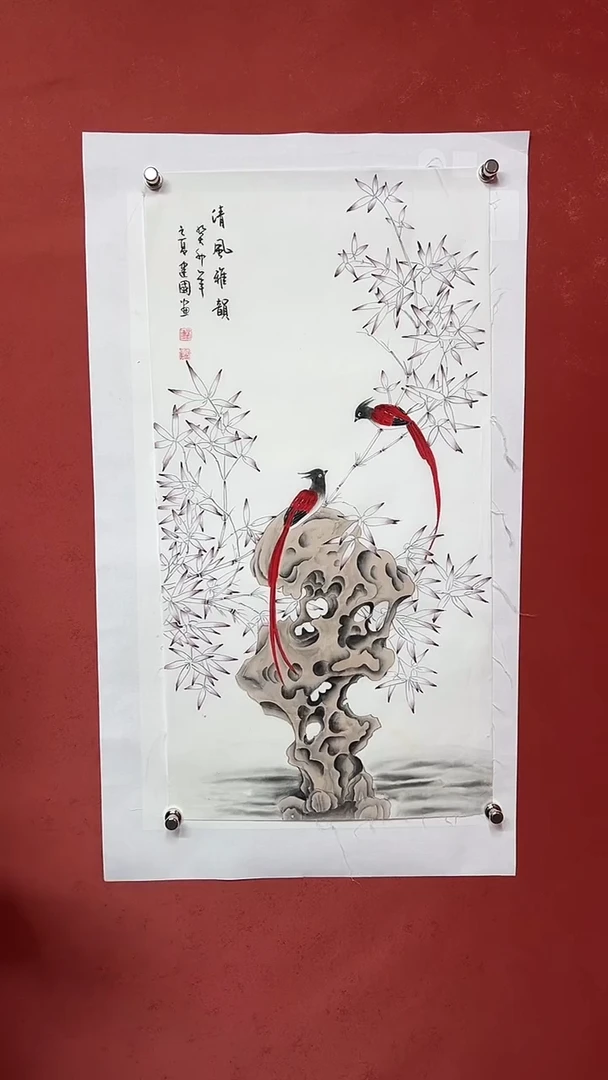 清風雅韻
癸卯年
之夏建國畫